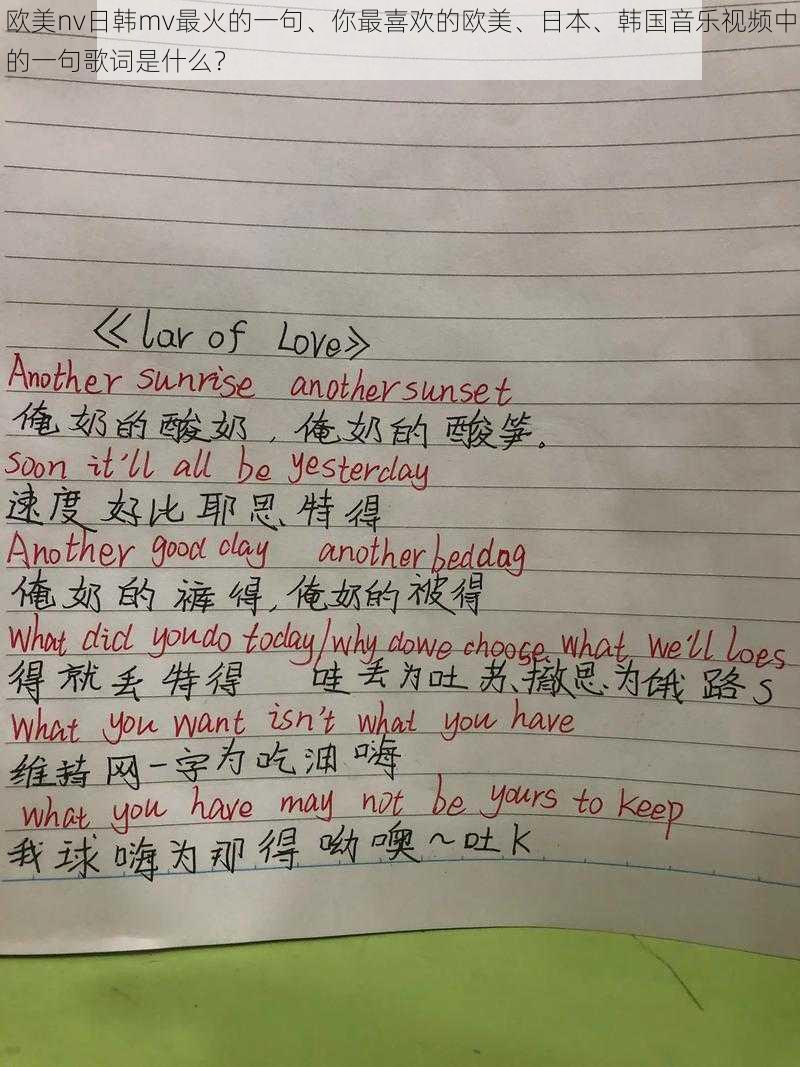 欧美nv日韩mv最火的一句、你最喜欢的欧美、日本、韩国音乐视频中
的一句歌词是什么？
《lar of Love》
Another sunrise another sunset
俺奶的酸奶，俺奶的酸笋。
soon it'll all be yesterday
速度好比耶思特得
Another good day another beddag
俺奶的裤得,俺奶的被得
what did you do today/why dowe choose what we'll loes
得就丢特得 哇丢为吐苏撤思为饿路S
what you want isn't what you have
维持网一字为吃油嗨
what you have may not be yours to keep
我球嗨为那得呦噢~吐K